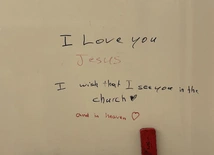 I Love you
Jesus
I wish that I see you in the
church
and u heaven